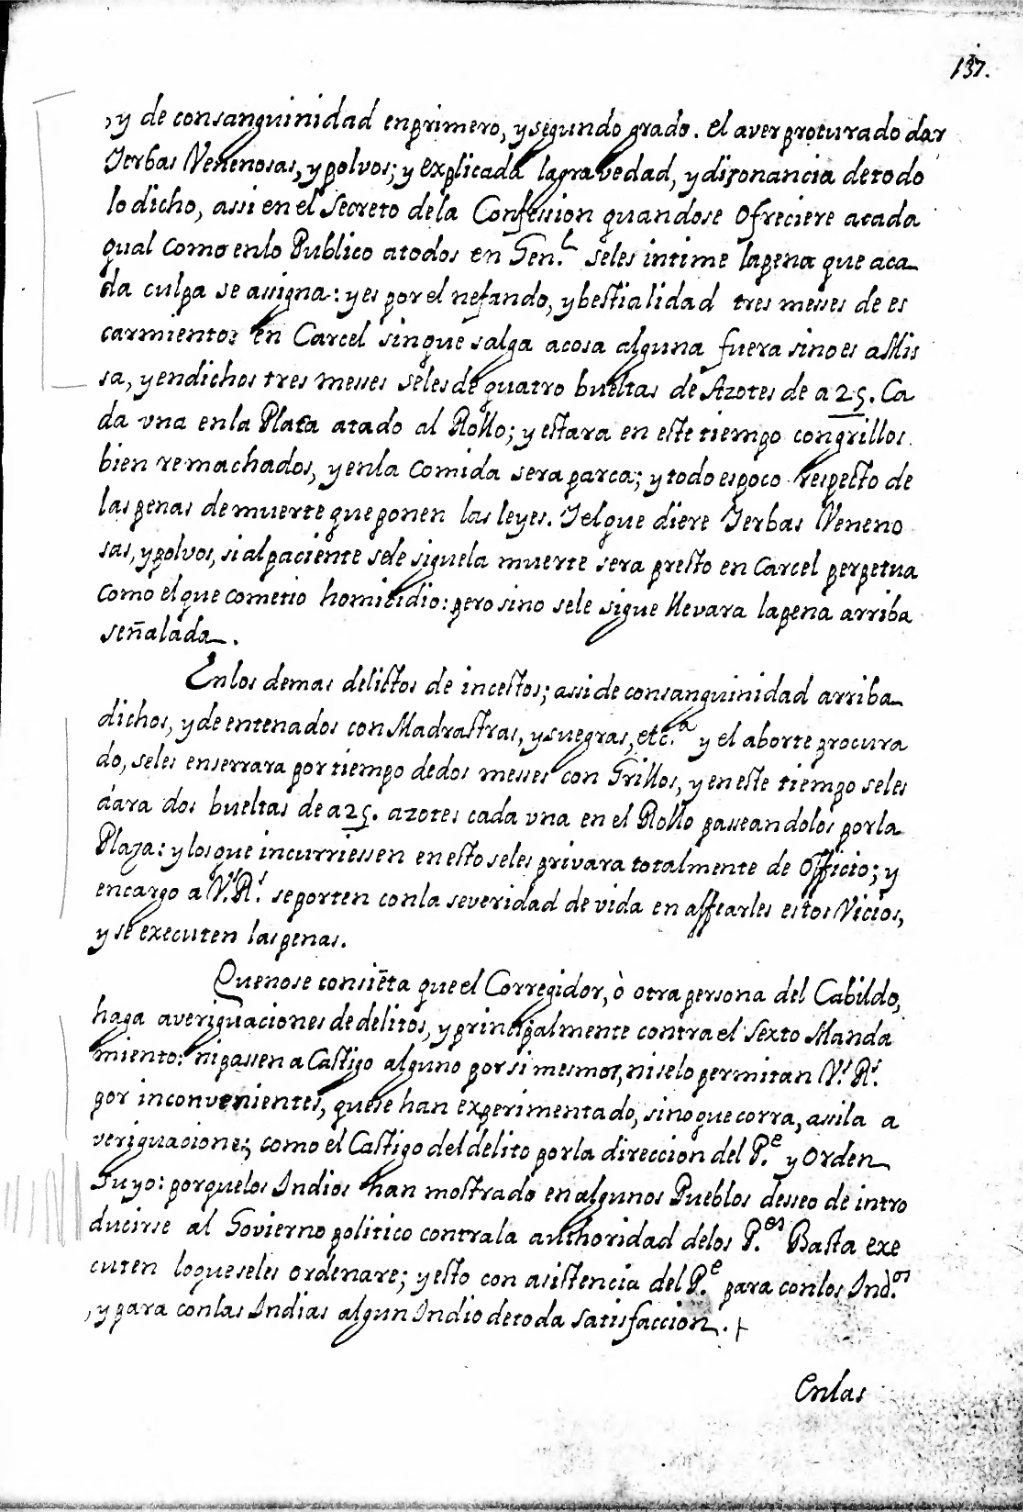 137.
, y de consanguinidad en primero, y segundo grado. el aver procurado dar
Ierbas Venenosas, y polvos; y explicada la gravedad, y disonancia de todo
lo dicho, assi en el Secreto de la Confession quando se ofreciere a cada
qual como en lo Publico a todos en Gen.l se les intime la pena que a ca
da culpa se assigna: y es por el nefando, y bestialidad tres messes de es
carmiento: en Carcel sin que salga a cosa alguna fuera sino es a Mis
sa, y en dichos tres messes se les de quatro bueltas de Azotes de a 25. Ca
da vna en la Plaça atado al Rollo; y estara en este tiempo con grillos
bien remachados, y en la comida sera parca; y todo es poco respecto de
las penas de muerte que ponen las leyes. I el que diere Ierbas Veneno
sas, y polvos, si al paciente se le sigue la muerte sera presto en Carcel perpetua
como el que cometio homicidio: pero si no se le sigue llevara la pena arriba
señalada.
En los demas delictos de incestos; assi de consanguinidad arriba
dichos, y de entenados con Madrastras, y suegras, etc.a y el aborte procura
do, se les enserrara por tiempo de dos messes con Grillos, y en este tiempo se les
dara dos bueltas de a 25. azotes cada vna en el Rollo passeandolos por la
Plaza: y los que incurriessen en esto se les privara totalmente de Officio; y
encargo a V.s R.s se porten con la severidad de vida en affearles estos Vicios,
y se executen las penas.
Que no se consiẽta que el Corregidor, ò otra persona del Cabildo,
haga averiguaciones de delitos, y principalmente contra el Sexto Manda
miento: ni passen a Castigo alguno por si mesmos, ni se lo permitan V.s R.s
por inconvenientes, que se han experimentado, sino que corra, assi la a
veriguacion; como el Castigo del delito por la direccion del P.e y Orden
Suyo: porque los Indios han mostrado en algunos Pueblos desseo de intro
ducirse al Govierno politico contra la authoridad de los P.es Basta exe
cuten lo que se les ordenare; y esto con asistencia del P.e para con los Ind.os
, y para con las Indias algun Indio de toda satisfaccion.
En las